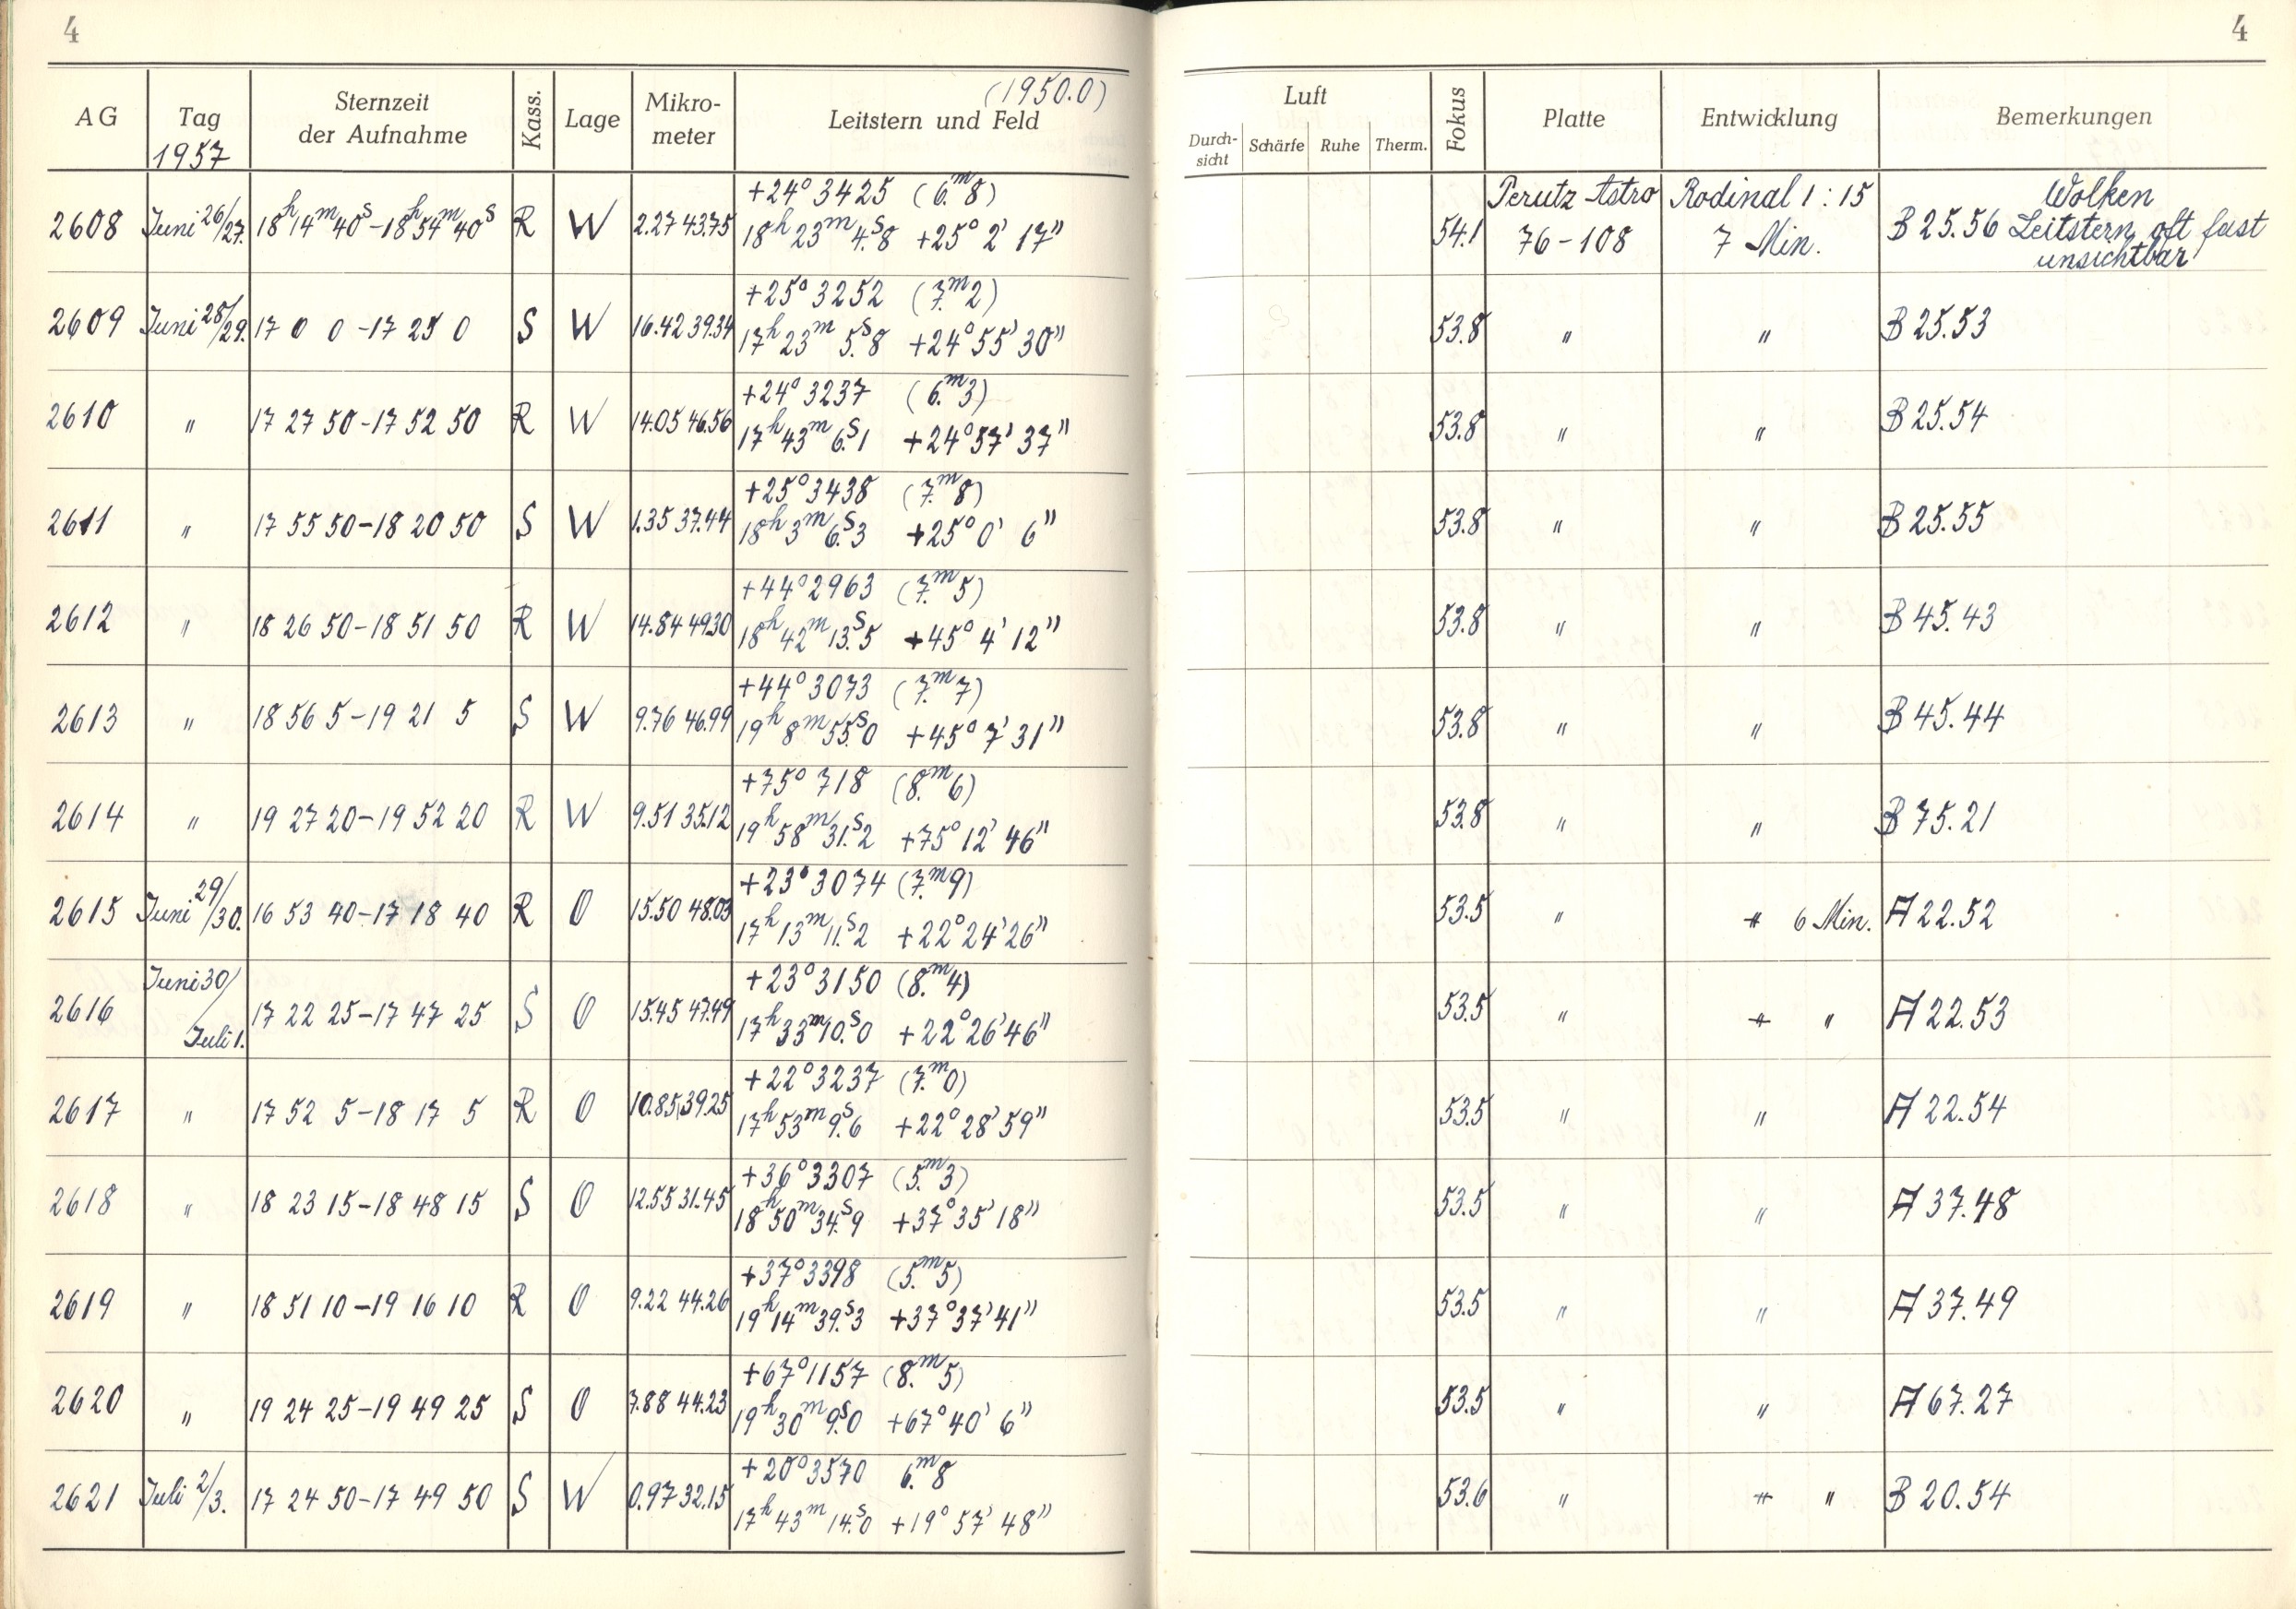 4
4
AG Tag 1957 Sternzeit der Aufnahme Kass. Lage Mikro-meter (1950.0) Leitstern und Feld Luft Durch-sicht Schärfe Ruhe Therm. Fokus Platte Entwicklung Bemerkungen
+24° 3425 (6.ᵐ8) Perutz Astro Rodinal 1:15 Wolken
2608 Juni 26/27. 18ʰ14ᵐ40ˢ-18ʰ54ᵐ40ˢ R W 2.27 43.75 18ʰ 23ᵐ 4.ˢ8 +25° 2' 17" 54.1 76-108 7 Min. B 25.56 Leitstern oft fast
unsichtbar
+25° 3252 (7.ᵐ2)
2609 Juni 28/29. 17 0 0-17 25 0 S W 16.42 39.34 17ʰ 23ᵐ 5.ˢ8 +24° 55' 30" 53.8 " " B 25.53
+24° 3237 (6.ᵐ3)
2610 " 17 27 50-17 52 50 R W 14.05 46.56 17ʰ 43ᵐ 6.ˢ1 +24° 57' 37" 53.8 " " B 25.54
+25° 3438 (7.ᵐ8)
2611 " 17 55 50-18 20 50 S W 1.35 37.44 18ʰ 3ᵐ 6.ˢ3 +25° 0' 6" 53.8 " " B 25.55
+44° 2963 (7.ᵐ5)
2612 " 18 26 50-18 51 50 R W 14.84 49.30 18ʰ 42ᵐ 13.ˢ5 +45° 4' 12" 53.8 " " B 45.43
+44° 3073 (7.ᵐ7)
2613 " 18 56 5-19 21 5 S W 9.76 46.99 19ʰ 8ᵐ 55.ˢ0 +45° 7' 31" 53.8 " " B 45.44
+75° 718 (8.ᵐ6)
2614 " 19 27 20-19 52 20 R W 9.51 35.12 19ʰ 58ᵐ 31.ˢ2 +75° 12' 46" 53.8 " " B 75.21
+23° 3074 (7.ᵐ9)
2615 Juni 29/30. 16 53 40-17 18 40 R O 15.50 48.03 17ʰ 13ᵐ 11.ˢ2 +22° 24' 26" 53.5 " " 6 Min. A 22.52
+23° 3150 (8.ᵐ4)
2616 Juni 30/Juli 1. 17 22 25-17 47 25 S O 15.45 47.49 17ʰ 33ᵐ 10.ˢ0 +22° 26' 46" 53.5 " " " A 22.53
+22° 3237 (7.ᵐ0)
2617 " 17 52 5-18 17 5 R O 10.85 39.25 17ʰ 53ᵐ 9.ˢ6 +22° 28' 59" 53.5 " " A 22.54
+36° 3307 (5.ᵐ3)
2618 " 18 23 15-18 48 15 S O 12.55 31.45 18ʰ 50ᵐ 34.ˢ9 +37° 35' 18" 53.5 " " A 37.48
+37° 3398 (5.ᵐ5)
2619 " 18 51 10-19 16 10 R O 9.22 44.26 19ʰ 14ᵐ 39.ˢ3 +37° 37' 41" 53.5 " " A 37.49
+67° 1157 (8.ᵐ5)
2620 " 19 24 25-19 49 25 S O 7.88 44.23 19ʰ 30ᵐ 9.ˢ0 +67° 40' 6" 53.5 " " A 67.27
+20° 3570 6.ᵐ8
2621 Juli 2/3. 17 24 50-17 49 50 S W 0.97 32.15 17ʰ 43ᵐ 14.ˢ0 +19° 57' 48" 53.6 " " " B 20.54